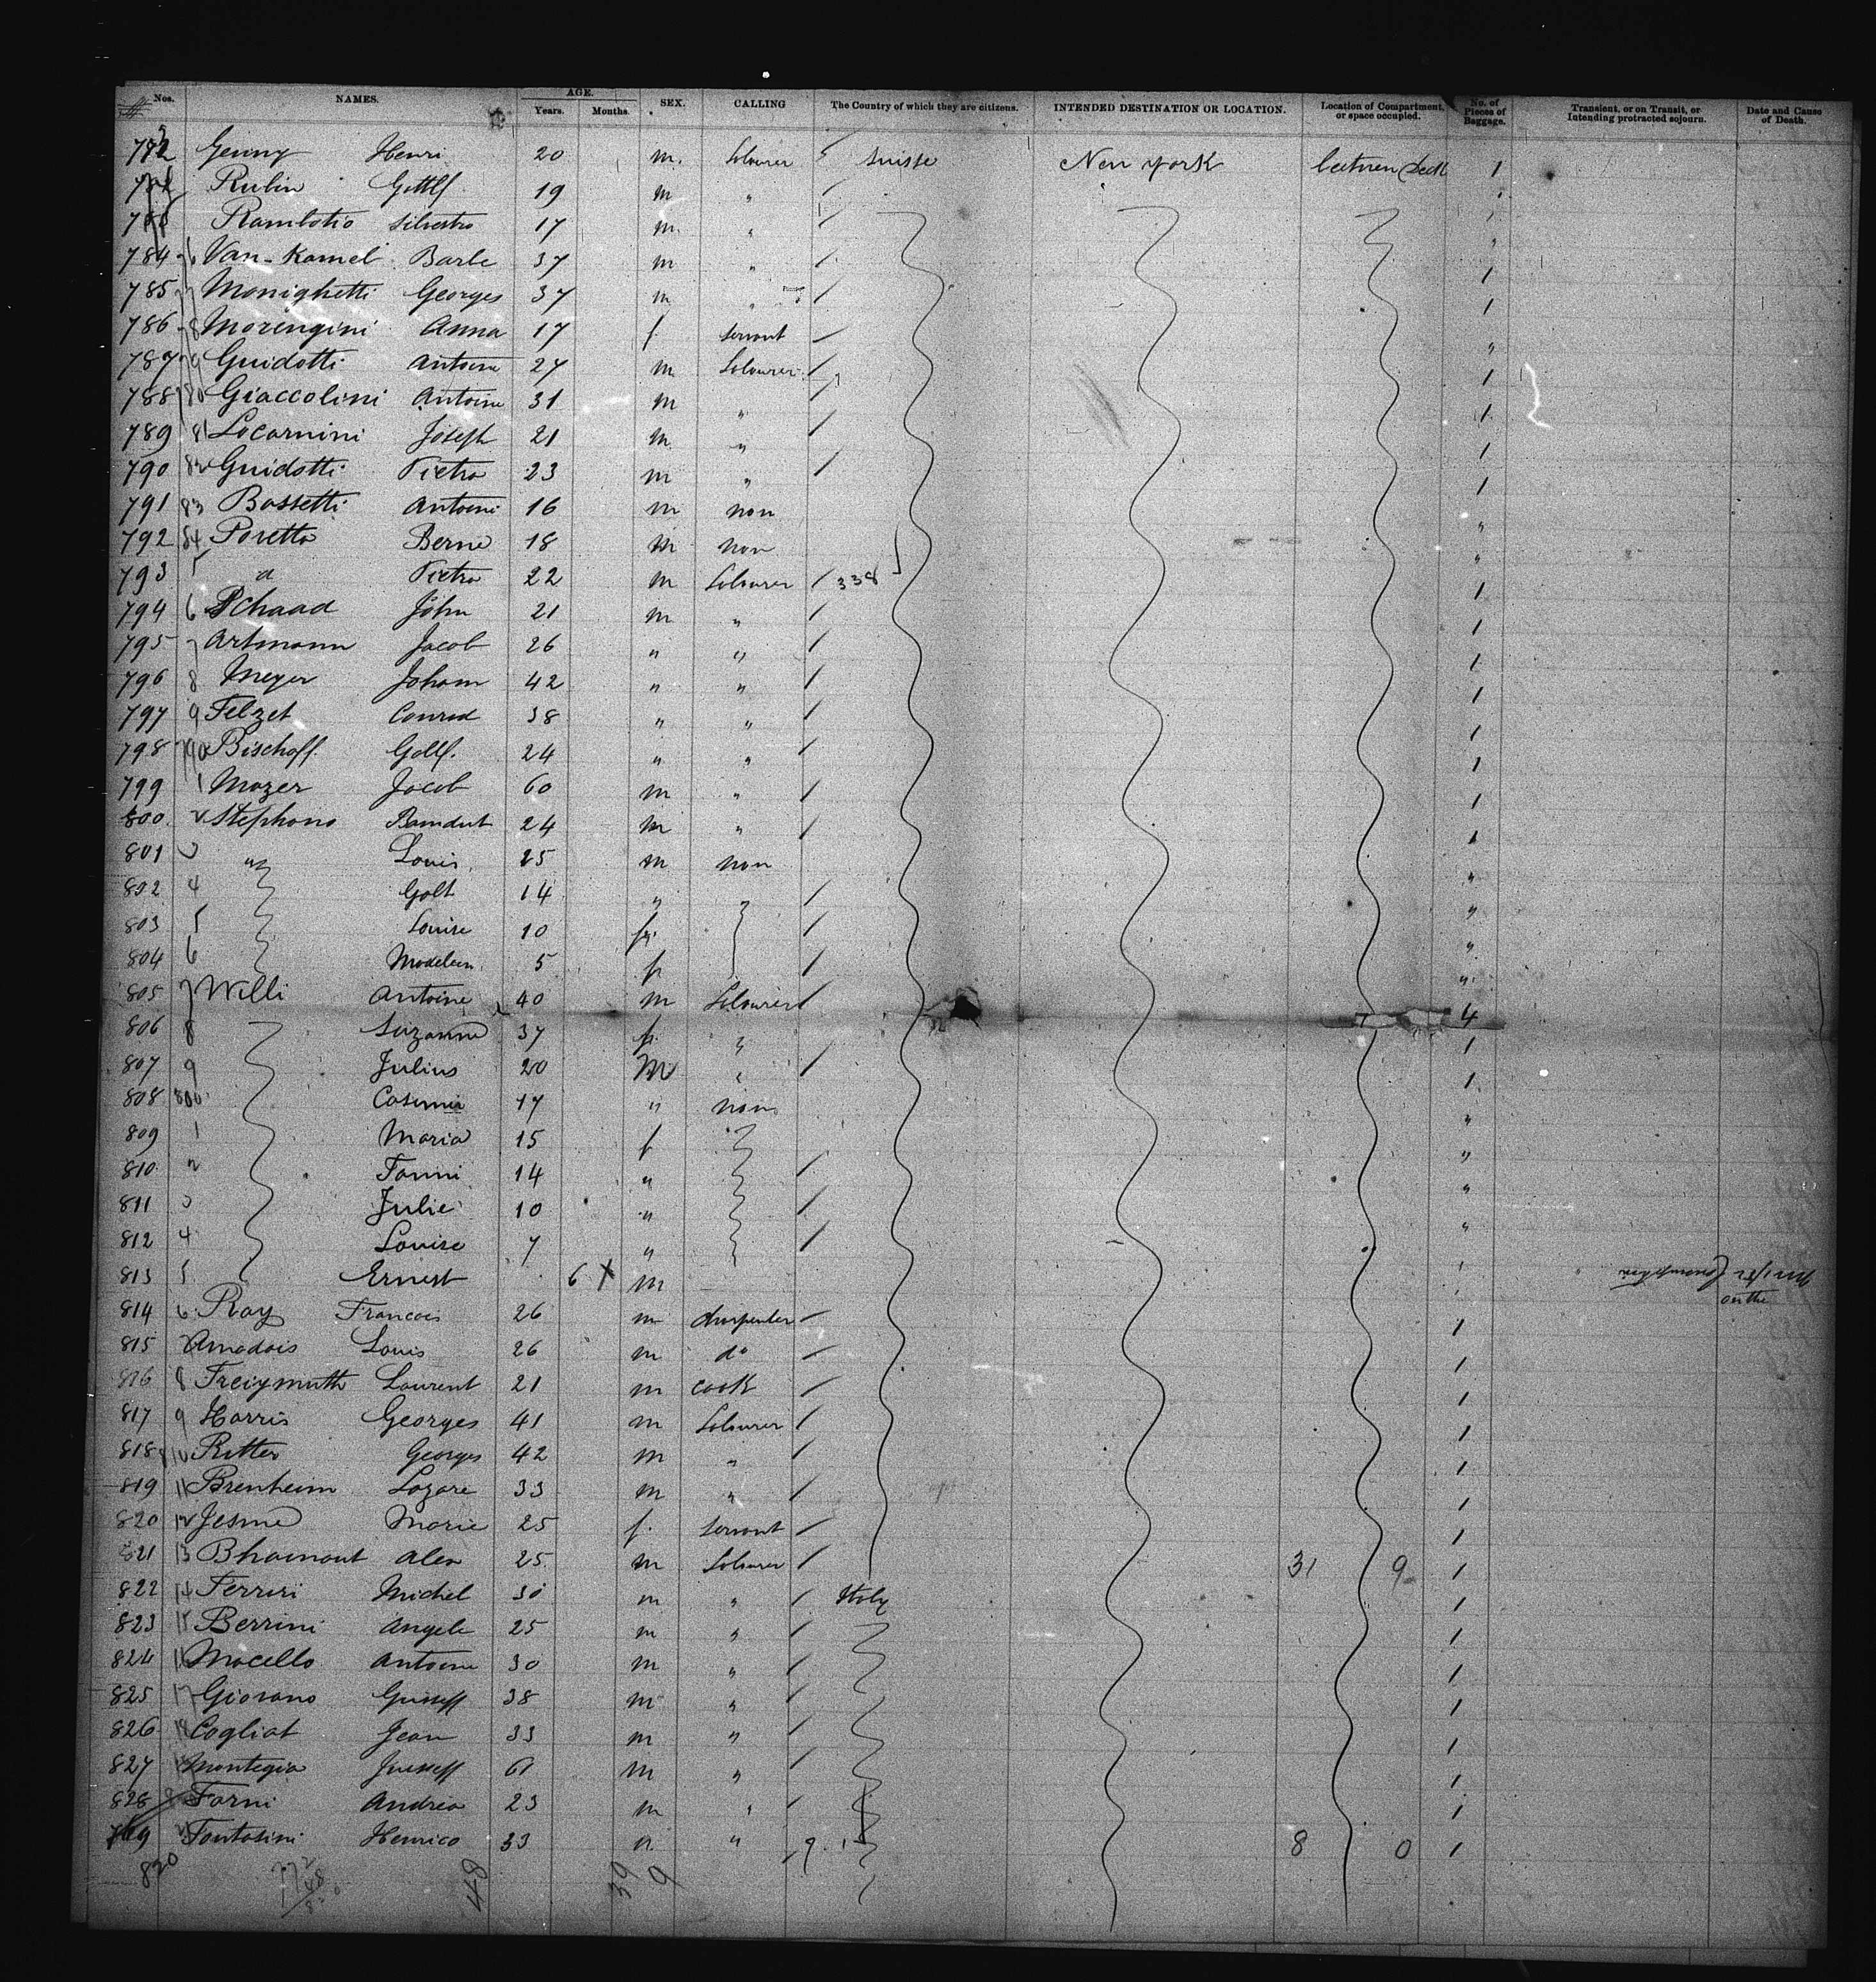 Nos. NAMES. AGE. Years. Months. SEX. CALLING The Country of which they are citizens. INTENDED DESTINATION OR LOCATION. Location of Compartment, or space occupied. No. of Pieces of Baggage. Transient, or on Transit, or Intending protracted sojourn. Date and Cause of Death.
Henri 20 m. Labourer Suisse New York between Deck 1
Rubin Gottlf 19 m "
Rambotio Silvestro 17 m "
784 6 Van-Kamel Barbe 37 m " 1
785 7 Monighetti Georges 37 m " 1
786 8 Morengini Anna 17 f. servant "
787 79 Guidotti Antoine 27 m Labourer 1
788 80 Giaccolini Antoine 31 m " 1
789 81 Locarnini Joseph 21 m " 1
790 82 Guidotti Pietro 23 m " 1
791 83 Bossetti Antoine 16 m non "
792 84 Poretto Berne 18 m non "
793 5 d Pietro 22 m Labourer 338 1
794 6 Schaad John 21 m " 1
795 7 Artmann Jacob 26 " " 1
796 8 Meyer Johann 42 " " 1
797 9 Felzet Conrad 38 " " 1
798 790 Bischoff Gottf. 24 " " 1
799 1 Mozer Jacob 60 m " 1
800 2 Stephano 24 m " 1
801 3 " Louis 25 m non "
802 4 Gott 14 " "
803 5 Louise 10 f. "
804 6 Madelein 5 f "
805 7 Willi Antoine 40 m Labourer 4
806 8 Suzanne 37 f. " 1
807 9 Julius 20 m " 1
808 800 Casimir 17 " non "
809 1 Maria 15 f "
810 2 Fanni 14 " "
811 3 Julie 10 " "
812 4 Louise 7 "
813 5 Ernest 6 X m
814 6 Ray Francois 26 m Charpenter 1
815 7 Amadois Louis 26 m do 1
816 8 Freiymuth Laurent 21 m cook 1
817 9 Harris Georges 41 m Labourer 1
818 810 Ritter Georges 42 m " 1
819 11 Brenheim Lazare 33 m " 1
820 12 Jesme Marie 25 f. servant 1
821 13 Bhamont Alex 25 m Labourer 31 9 1
822 14 Ferreri Michel 30 m " Italy 1
823 15 Berrini Angele 25 m " 1
824 16 Macello Antoine 30 m " 1
825 17 Giovano Guiseff 38 m " 1
826 18 Cogliat Jean 33 m " 1
827 Montegia Juiseff 61 m " 1
828 Forni Andrea 23 m " 1
Fontasini Henrico 33 " 9 8 0 1
820 772 48 820 48 39 9